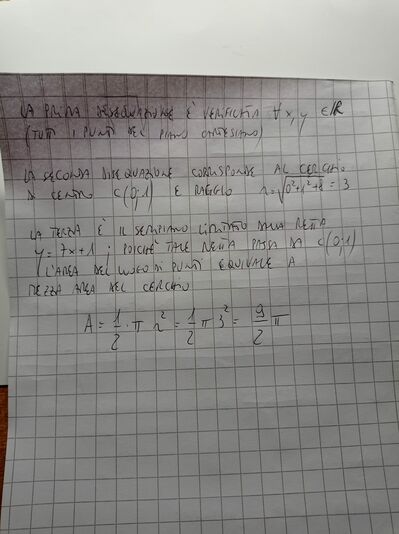 LA PRIMA DISEQUAZIONE È VERIFICATA ∀ x, y ∈ ℝ
(TUTTI I PUNTI DEL PIANO CARTESIANO)
LA SECONDA DISEQUAZIONE CORRISPONDE AL CERCHIO
DI CENTRO C(0,1) E RAGGIO r = √(0²+1²+8) = 3
LA TERZA È IL SEMIPIANO LIMITATO DALLA RETTA
y = 7x+1 ; POICHÉ TALE RETTA PASSA DA C(0,1)
L'AREA DEL LUOGO DI PUNTI EQUIVALE A
MEZZA AREA DEL CERCHIO
A = 1/2 · π r² = 1/2 π 3² = 9/2 π